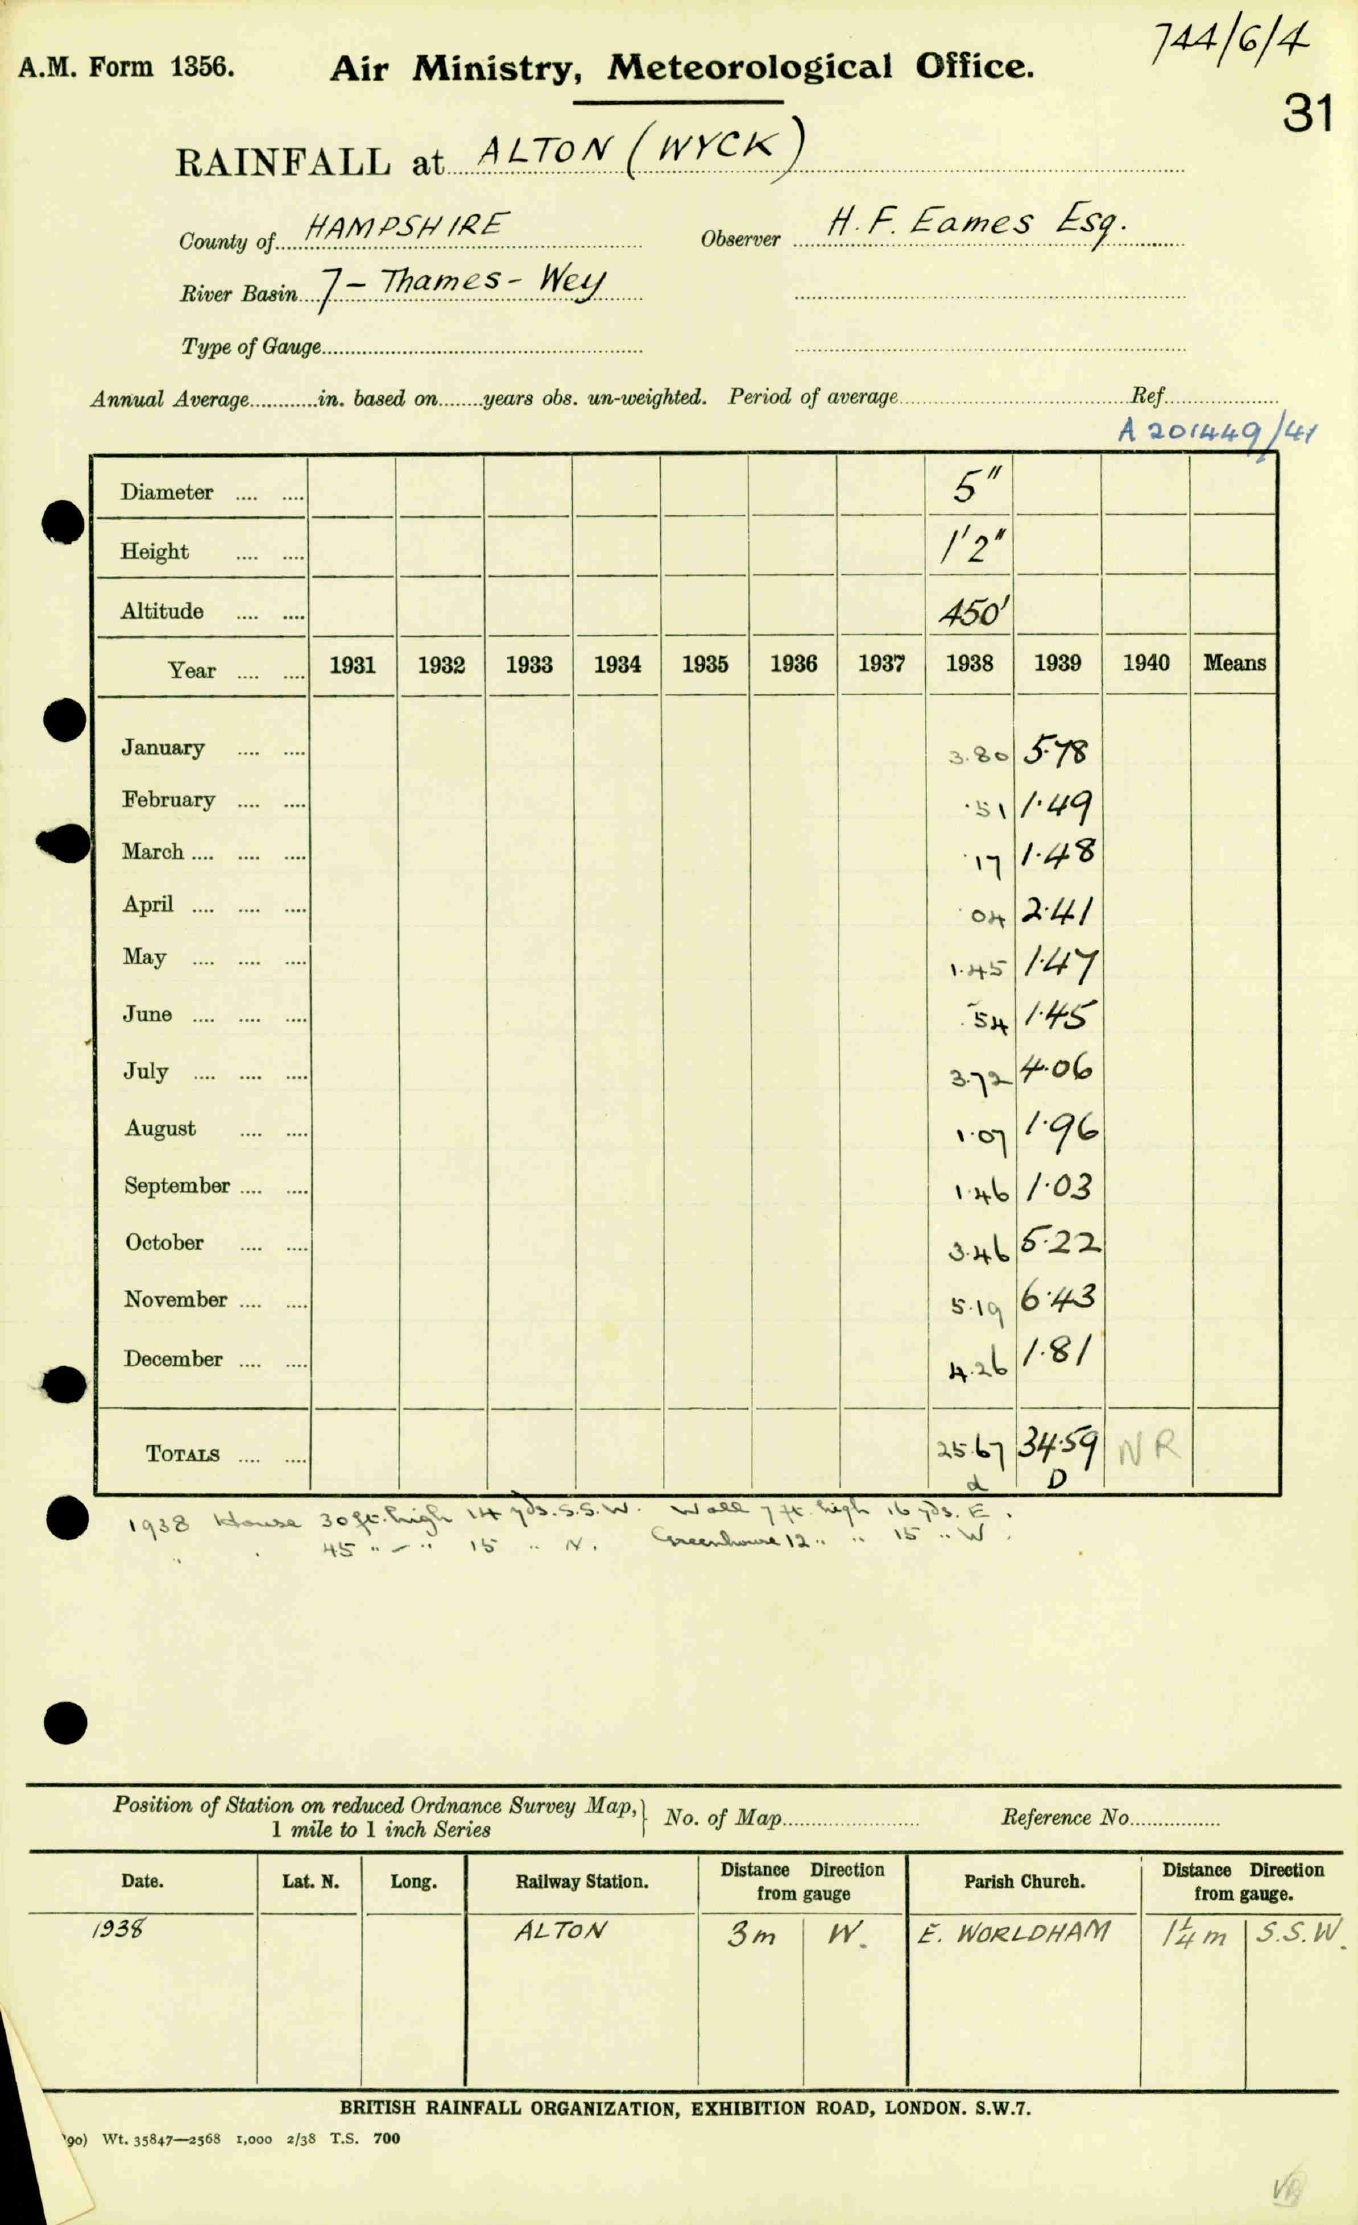 744/6/4
A.M. Form 1356. Air Ministry, Meteorological Office.
31
RAINFALL at ALTON (WYCK)
County of HAMPSHIRE Observer H. F. Eames Esq.
River Basin 7 - Thames - Wey
Type of Gauge
Annual Average in. based on years obs. un-weighted. Period of average Ref.
A 201449/41
Diameter 5"
Height 1'2"
Altitude 450'
Year 1931 1932 1933 1934 1935 1936 1937 1938 1939 1940 Means
January 3.80 5.78
February .51 1.49
March .17 1.48
April .04 2.41
May 1.45 1.47
June .54 1.45
July 3.72 4.06
August 1.07 1.96
September 1.46 1.03
October 3.46 5.22
November 5.19 6.43
December 4.26 1.81
TOTALS 25.67 34.59 NR
d D
1938 House 30 ft. high 14 yds. S.S.W. Wall 7 ft. high 16 yds. E.
" " 45 " - " 15 " N. Greenhouse 12 " " 15 " W.
Position of Station on reduced Ordnance Survey Map, } No. of Map Reference No.
1 mile to 1 inch Series
Date. Lat. N. Long. Railway Station. Distance Direction from gauge Parish Church. Distance Direction from gauge.
1938 ALTON 3m W. E. WORLDHAM 1¼ m S.S.W.
BRITISH RAINFALL ORGANIZATION, EXHIBITION ROAD, LONDON. S.W.7.
90) Wt. 35847—2568 1,000 2/38 T.S. 700